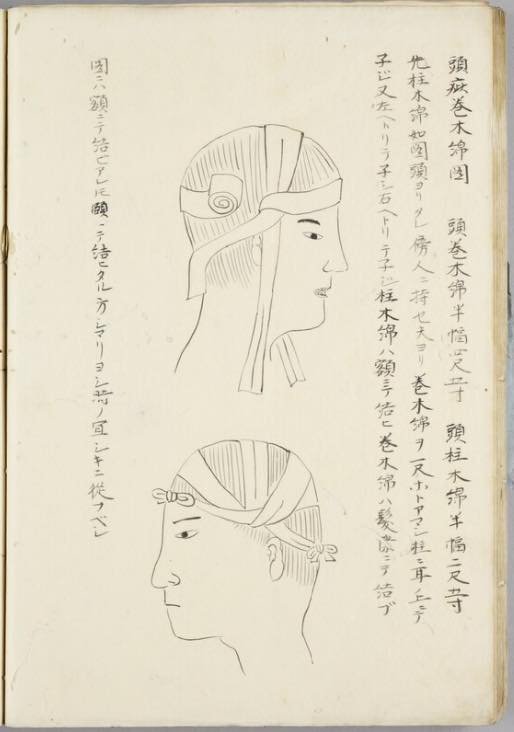 頭疵巻木綿圖 頭巻木綿半幅四尺五寸 頭柱木綿半幅二尺五寸
先柱木綿如圖頭ヨリタレ傍人ニ持セ夫ヨリ巻木綿ヲ一尺ホトアマシ柱ニ耳上ニテ
子ジ又左ヘトリテ子シ右ヘトリテ子ジ柱木綿ハ額ニテ結ヒ巻木綿ハ髪際ニテ結ブ
圖ニハ額ニテ結ヒアレ𪜈頤ニテ結ヒタル方シマリヨシ時ノ宜シキニ從フベシ